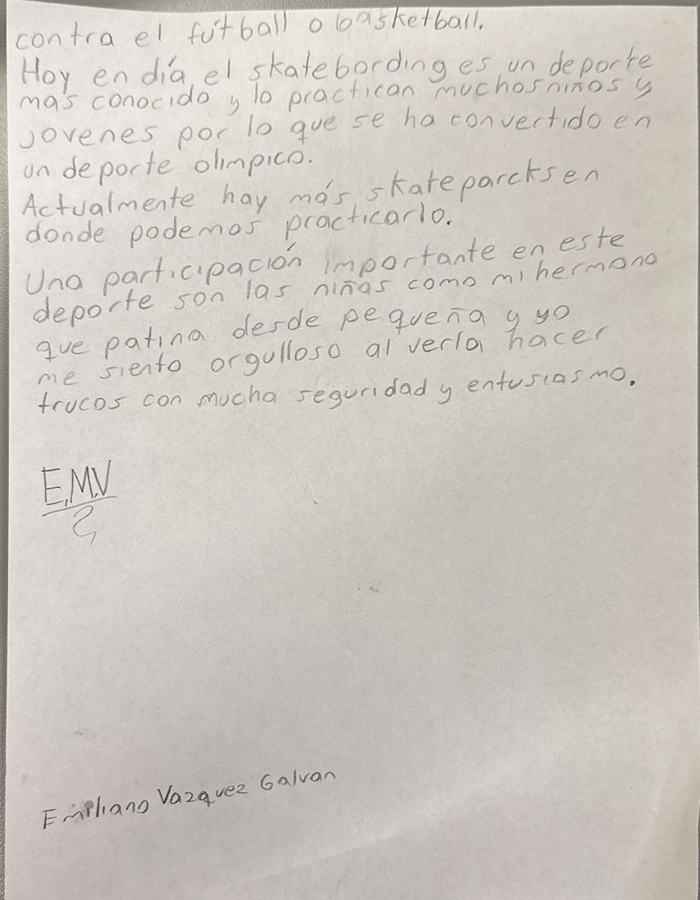 contra el fútball o basketball.
Hoy en día el skatebording es un deporte
mas conocido y lo practican muchos niños y
jovenes por lo que se ha convertido en
un deporte olimpico.
Actualmente hay más skateparcks en
donde podemos practicarlo.
Una participación importante en este
deporte son las niñas como mi hermana
que patina desde pequeña y yo
me siento orgulloso al verla hacer
trucos con mucha seguridad y entusiasmo.
E.M.V
Emiliano Vazquez Galvan